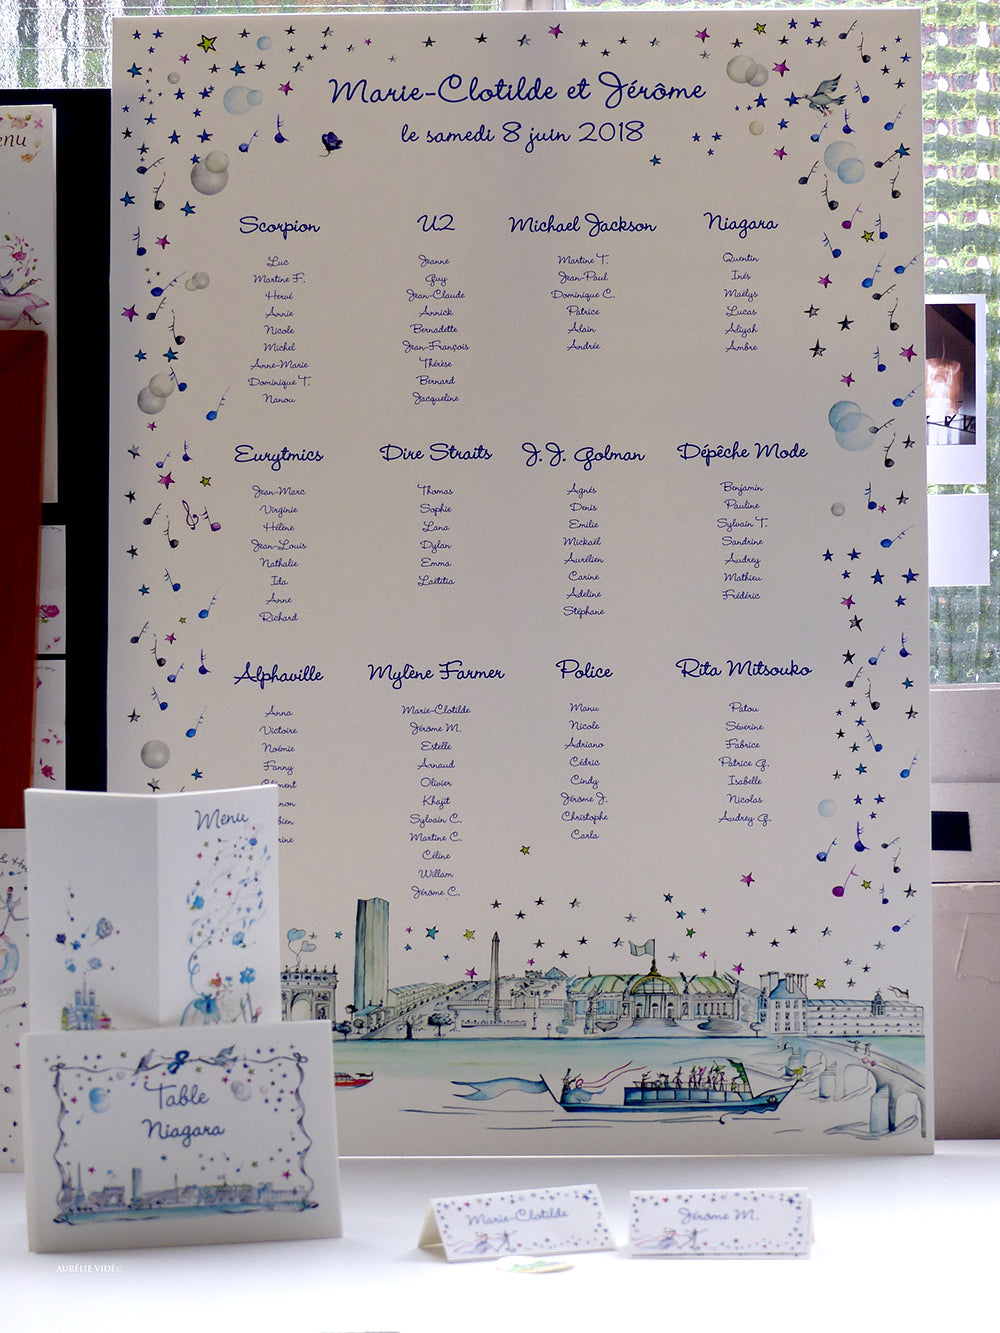 Marie-Clotilde et Jérôme
le samedi 8 juin 2018
Scorpion
Luc
Martine F.
Hervé
Annie
Nicole
Michel
Anne-Marie
Dominique T.
Nanou
U2
Jeanne
Guy
Jean-Claude
Annick
Bernadette
Jean-François
Thérèse
Bernard
Jacqueline
Michael Jackson
Martine T.
Jean-Paul
Dominique C.
Patrice
Alain
Andrée
Niagara
Quentin
Inés
Maëlys
Lucas
Aliyah
Ambre
Eurytmics
Jean-Marc
Virginie
Hélène
Jean-Louis
Nathalie
Ida
Anne
Richard
Dire Straits
Thomas
Sophie
Lana
Dylan
Emma
Laëtitia
J. J. Golman
Agnés
Denis
Emilie
Mickaël
Aurélien
Carine
Adeline
Stéphane
Dépêche Mode
Benjamin
Pauline
Sylvain T.
Sandrine
Audrey
Mathieu
Frédéric
Alphaville
Anna
Victoire
Noémie
Fanny
Mylène Farmer
Marie-Clotilde
Jérôme M.
Estelle
Arnaud
Olivier
Khajit
Sylvain C.
Martine C.
Céline
Willam
Jérôme C.
Police
Manu
Nicole
Adriano
Cédric
Cindy
Jérôme J.
Christophe
Carla
Rita Mitsouko
Patou
Séverine
Fabrice
Patrice G.
Isabelle
Nicolas
Audrey G.
Menu
8
Table
Niagara
Marie-Clotilde
Jérôme M.
2019
AURÉLIE VIDÉ©